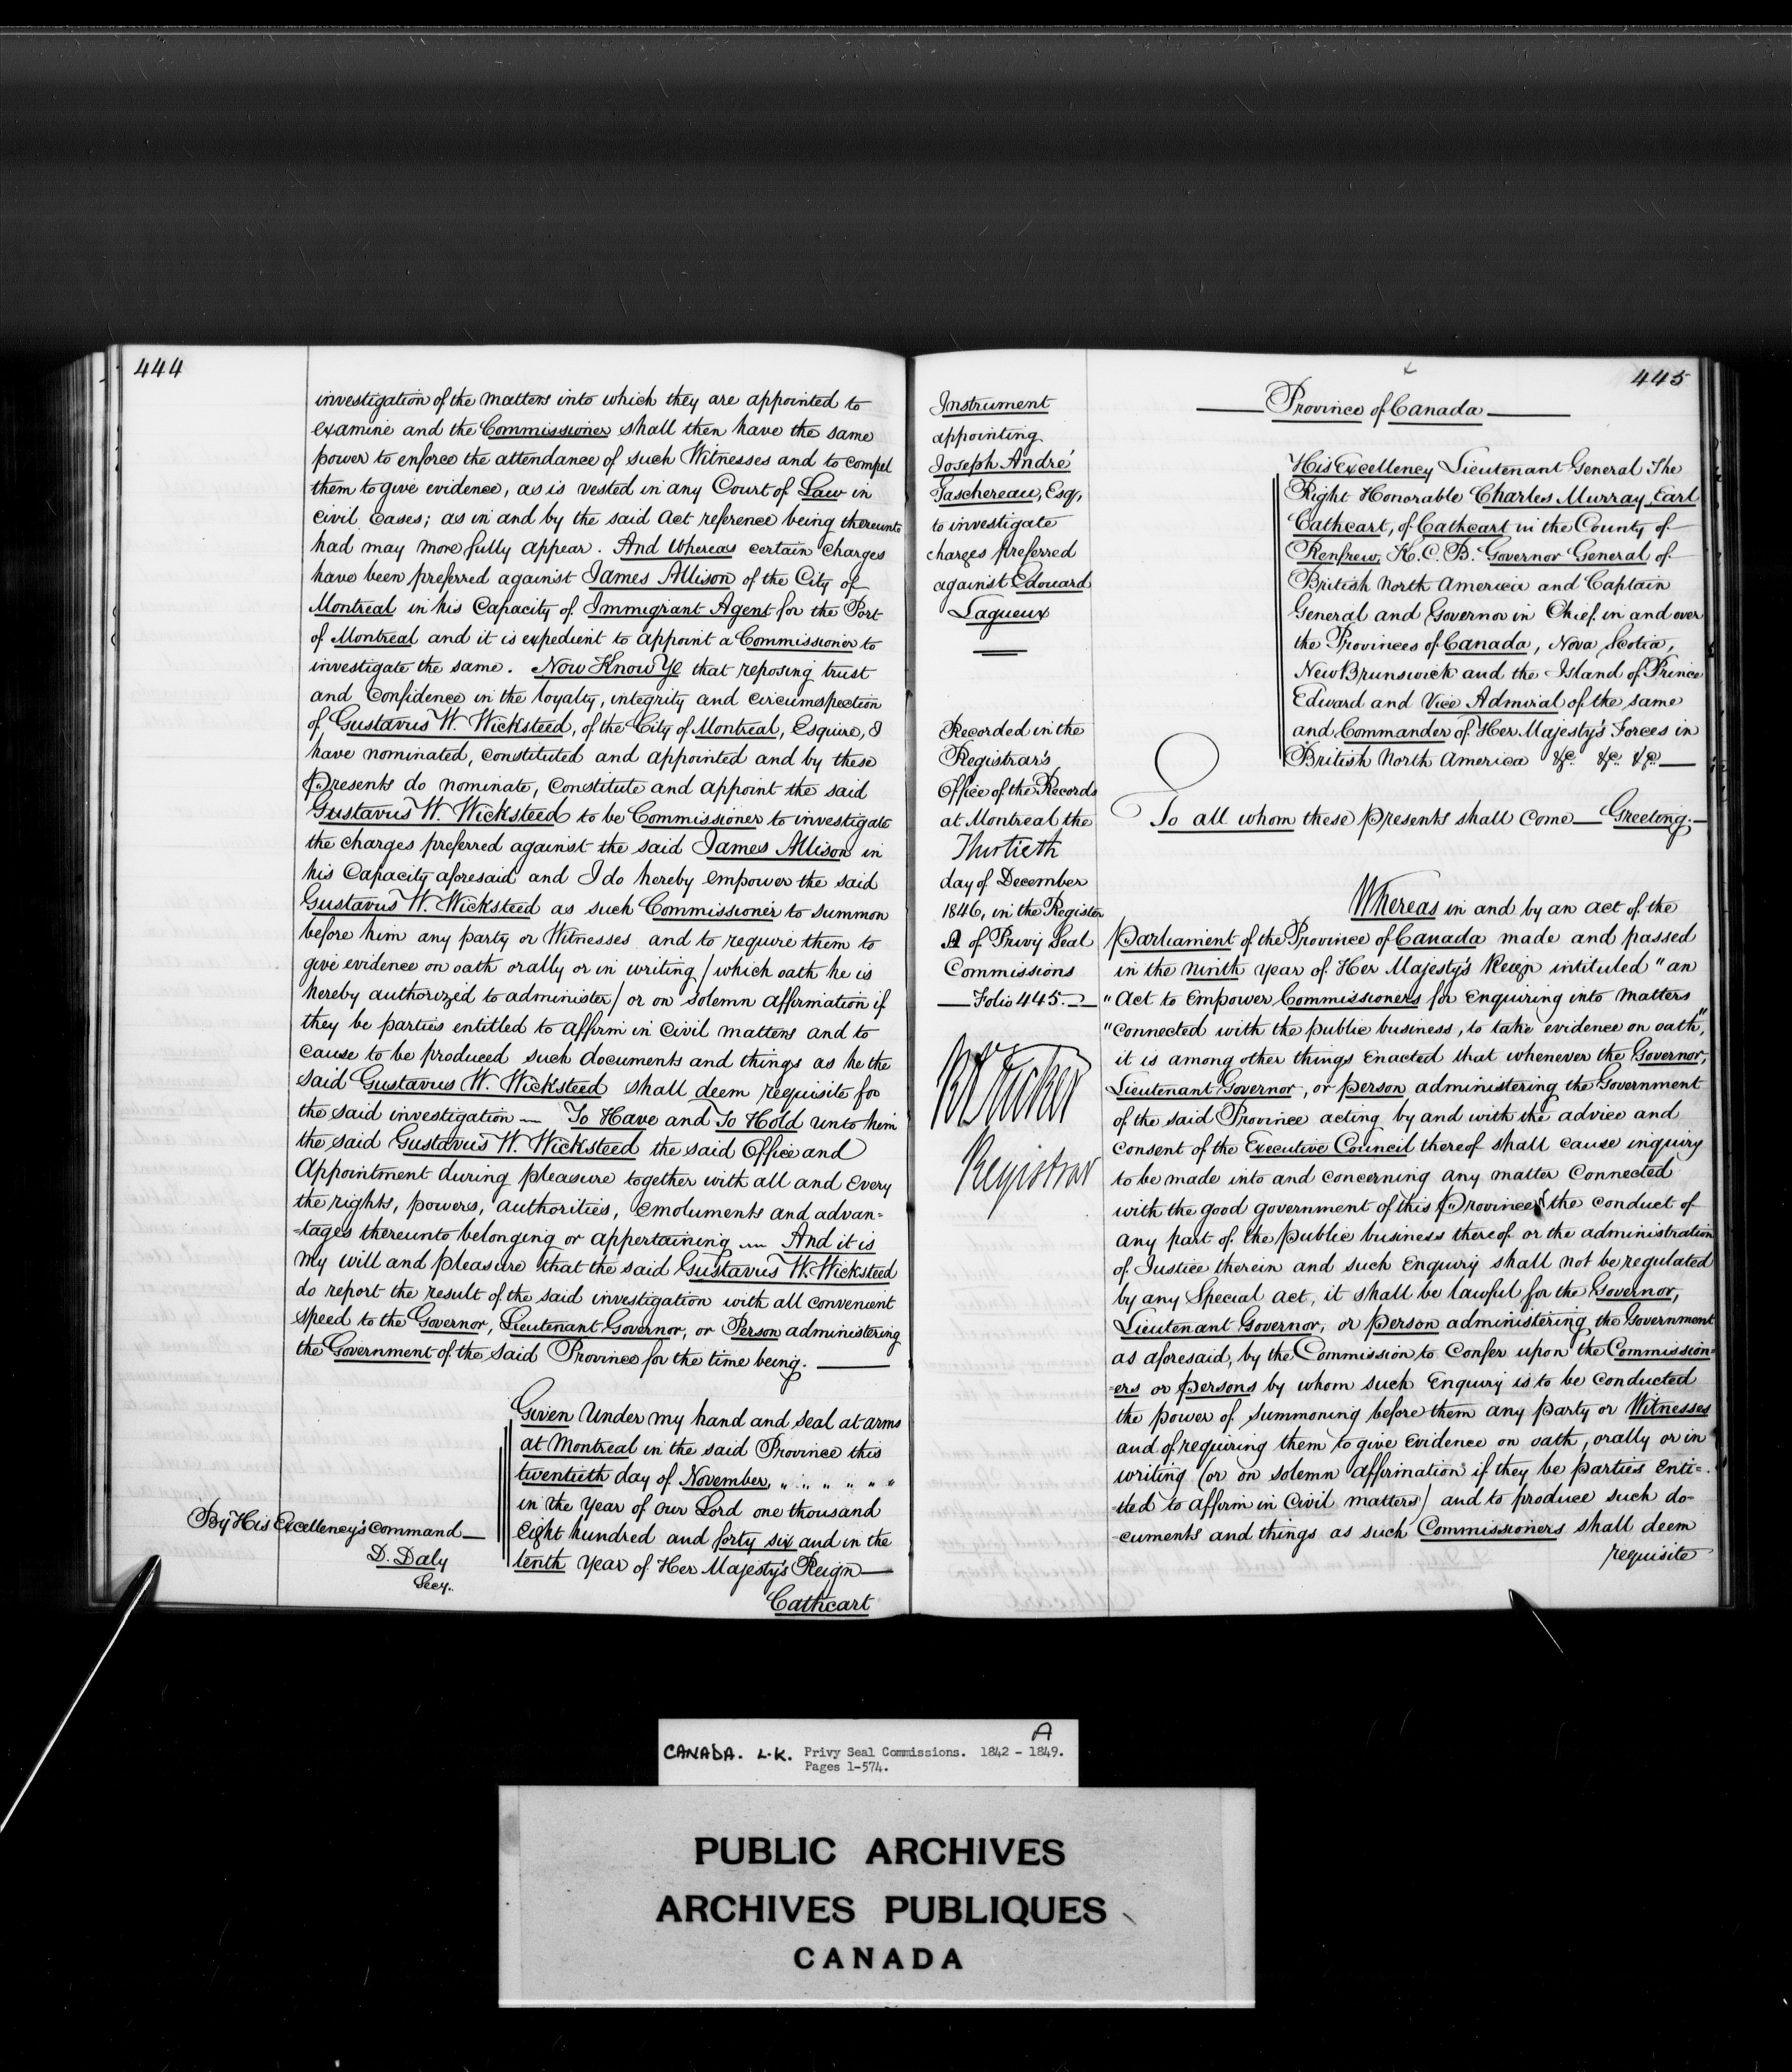 444
investigation of the matters into which they are appointed to
examine and the Commissioner shall then have the same
power to enforce the attendance of such Witnesses and to compel
them to give evidence, as is vested in any Court of Law in
civil cases; as in and by the said Act reference being thereunto
had may more fully appear. And Whereas certain charges
have been preferred against James Allison of the City of
Montreal in his Capacity of Immigrant Agent for the Port
of Montreal and it is expedient to appoint a Commissioner to
investigate the same. Now Know Ye that reposing trust
and confidence in the loyalty, integrity and circumspection
of Gustavus W. Wicksteed, of the City of Montreal, Esquire, I
have nominated, constituted and appointed and by these
Presents do nominate, constitute and appoint the said
Gustavus W. Wicksteed to be Commissioner to investigate
the charges preferred against the said James Allison in
his Capacity aforesaid and I do hereby empower the said
Gustavus W. Wicksteed as such Commissioner to summon
before him any party or Witnesses and to require them to
give evidence on oath orally or in writing / which oath he is
hereby authorized to administer / or on solemn affirmation if
they be parties entitled to affirm in Civil matters and to
cause to be produced such documents and things as he the
said Gustavus W. Wicksteed shall deem requisite for
the said investigation — To Have and To Hold unto him
the said Gustavus W. Wicksteed the said Office and
Appointment during pleasure together with all and every
the rights, powers, authorities, emoluments and advan=
=tages thereunto belonging or appertaining — And it is
my will and pleasure that the said Gustavus W. Wicksteed
do report the result of the said investigation with all convenient
speed to the Governor, Lieutenant Governor, or Person administering
the Government of the said Province for the time being. —
Given Under my hand and seal at arms
at Montreal in the said Province this
twentieth day of November, " " " " " "
in the year of our Lord one thousand
eight hundred and forty six and in the
tenth year of Her Majesty's Reign —
Cathcart
By His Excellency's command —
D. Daly
Secy.
445
Instrument
appointing
Joseph André
Taschereau, Esq,
to investigate
charges preferred
against Edouard
Lagueux
Recorded in the
Registrar's
Office of the Records
at Montreal the
Thirtieth
day of December
1846, in the Register
A of Privy Seal
Commissions
— Folio 445. —
R Tucker
Registrar
— Province of Canada —
His Excellency Lieutenant General The
Right Honorable Charles Murray, Earl
Cathcart, of Cathcart in the County of
Renfrew, K.C.B. Governor General of
British North America and Captain
General and Governor in Chief in and over
the Provinces of Canada, Nova Scotia,
New Brunswick and the Island of Prince
Edward and Vice Admiral of the same
and Commander of Her Majesty's Forces in
British North America &c. &c. &c. —
To all whom these Presents shall come — Greeting. —
Whereas in and by an act of the
Parliament of the Province of Canada made and passed
in the ninth year of Her Majesty's Reign intituled "an
"Act to empower Commissioners for enquiring into matters
"connected with the public business, to take evidence on oath",
it is among other things enacted that whenever the Governor,
Lieutenant Governor, or person administering the Government
of the said Province acting by and with the advice and
consent of the Executive Council thereof shall cause inquiry
to be made into and concerning any matter connected
with the good government of this Province & the conduct of
any part of the public business thereof or the administration
of Justice therein and such enquiry shall not be regulated
by any Special act, it shall be lawful for the Governor,
Lieutenant Governor, or person administering the Government
as aforesaid, by the Commission to confer upon the Commission=
=ers or persons by whom such enquiry is to be conducted
the power of summoning before them any party or Witnesses
and of requiring them to give evidence on oath, orally or in
writing (or on solemn affirmation if they be parties enti=
-tled to affirm in Civil matters / and to produce such do-
-cuments and things as such Commissioners shall deem
requisite
A
CANADA. L.K. Privy Seal Commissions. 1842 - 1849.
Pages 1-574.
PUBLIC ARCHIVES
ARCHIVES PUBLIQUES
CANADA